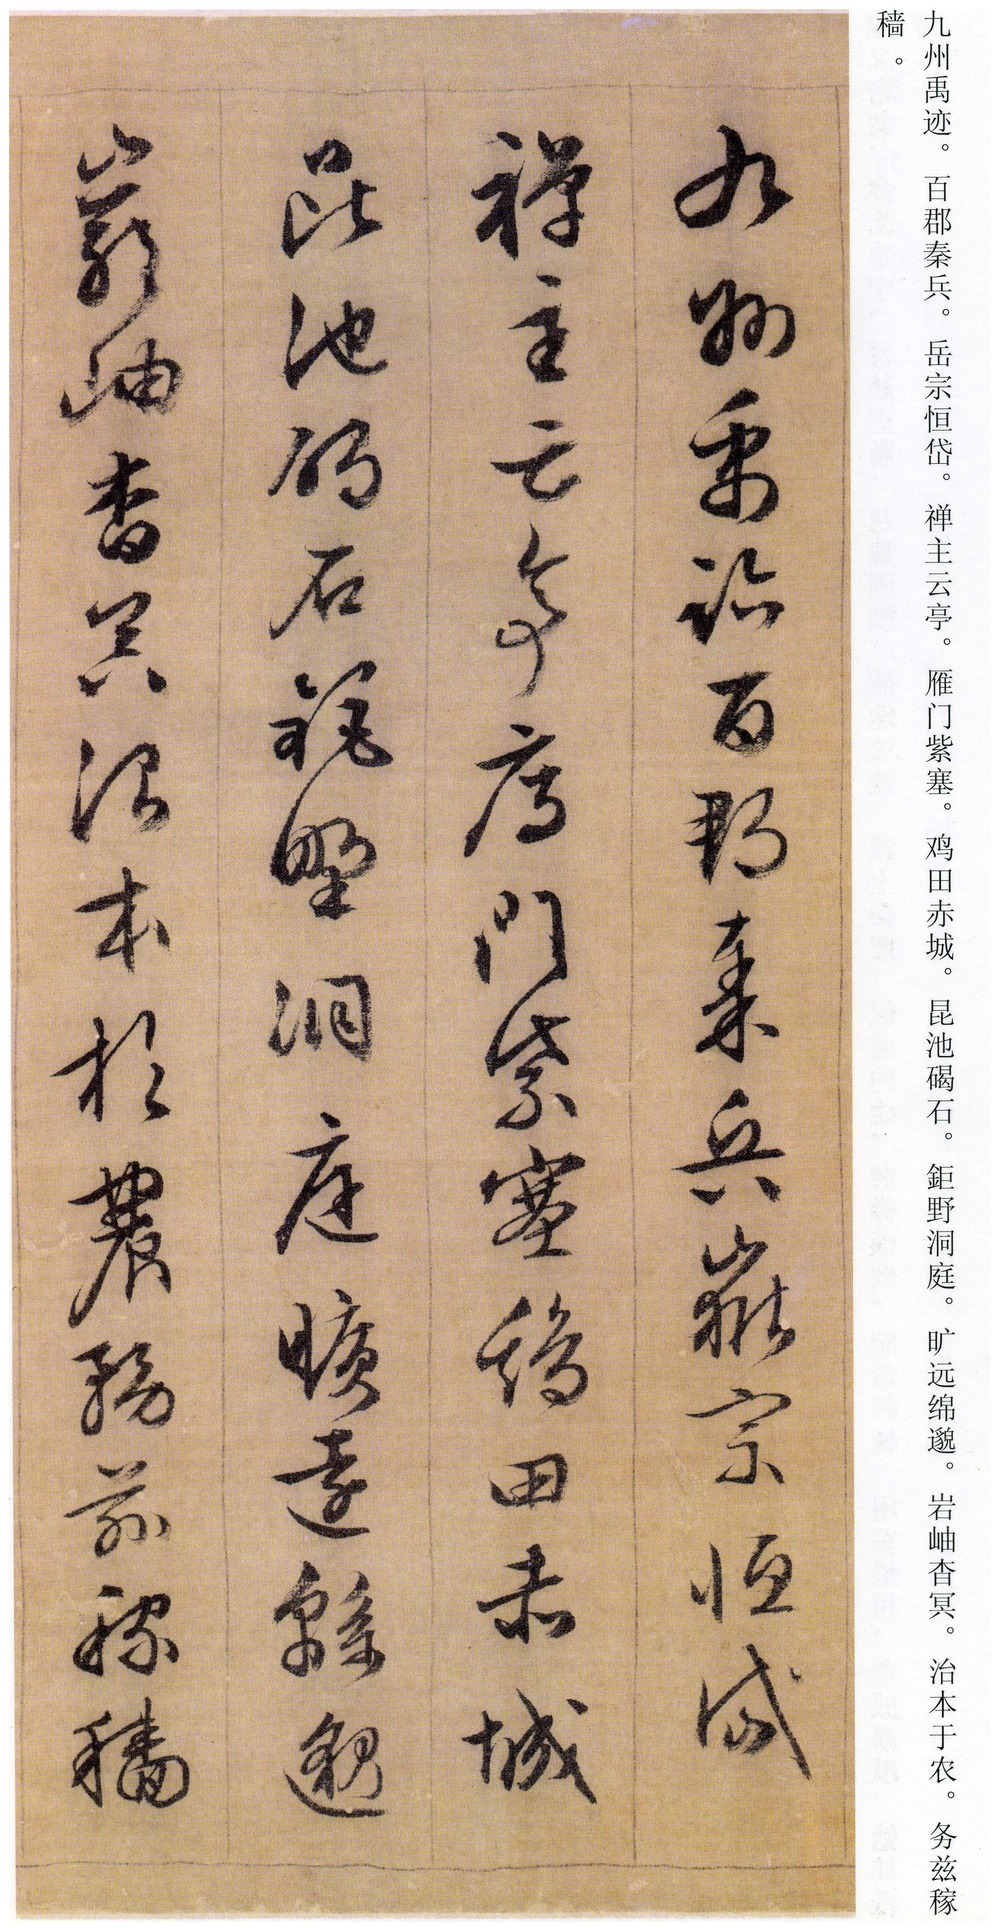 九州禹迹。百郡秦兵。岳宗恒岱。禅主云亭。雁门紫塞。鸡田赤城。昆池碣石。鉅野洞庭。旷远绵邈。岩岫杳冥。治本于农。务兹稼
穑。
九州禹跡百郡秦兵嶽宗恒岱
禪主云亭雁門紫塞鷄田赤城
昆池碣石鉅野洞庭曠遠緜邈
巖岫杳冥治本於農務茲稼穡